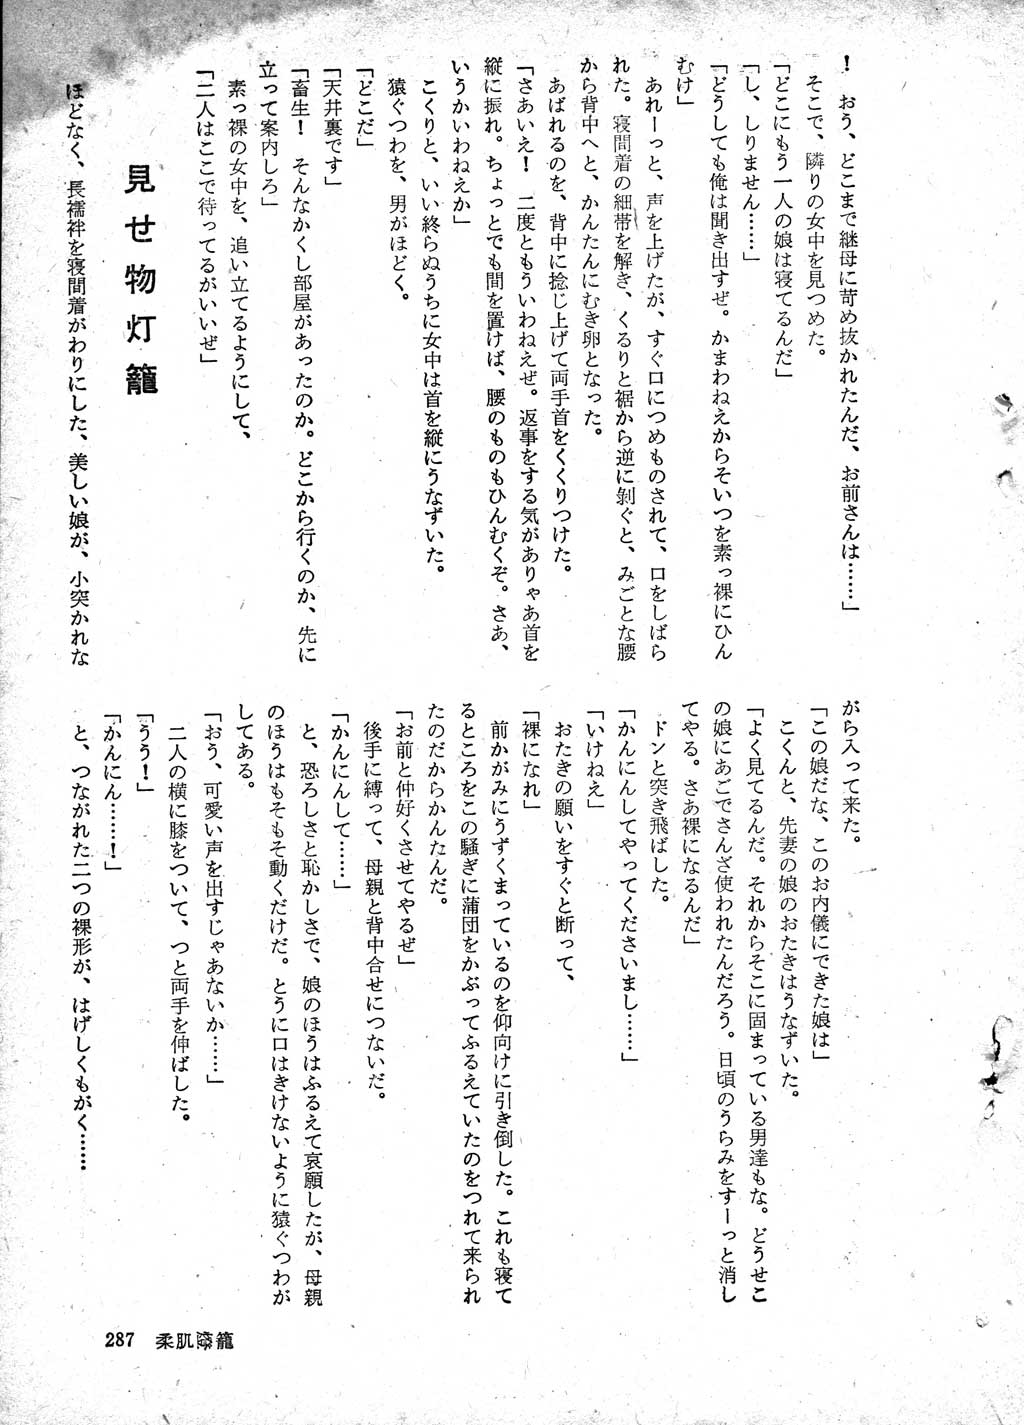 ！　おう、どこまで継母に苛め抜かれたんだ、お前さんは……」
そこで、隣りの女中を見つめた。
「どこにもう一人の娘は寝てるんだ」
「し、しりません……」
「どうしても俺は聞き出すぜ。かまわねえからそいつを素っ裸にひん
むけ」
あれーっと、声を上げたが、すぐ口につめものされて、口をしばら
れた。寝間着の細帯を解き、くるりと裾から逆に剝ぐと、みごとな腰
から背中へと、かんたんにむき卵となった。
あばれるのを、背中に捻じ上げて両手首をくくりつけた。
「さあいえ！　二度ともういわねえぜ。返事をする気がありゃあ首を
縦に振れ。ちょっとでも間を置けば、腰のものもひんむくぞ。さあ、
いうかいわねえか」
こくりと、いい終らぬうちに女中は首を縦にうなずいた。
猿ぐつわを、男がほどく。
「どこだ」
「天井裏です」
「畜生！　そんなかくし部屋があったのか。どこから行くのか、先に
立って案内しろ」
素っ裸の女中を、追い立てるようにして、
「二人はここで待ってるがいいぜ」
見せ物灯籠
ほどなく、長襦袢を寝間着がわりにした、美しい娘が、小突かれな
がら入って来た。
「この娘だな、このお内儀にできた娘は」
こくんと、先妻の娘のおたきはうなずいた。
「よく見てるんだ。それからそこに固まっている男達もな。どうせこ
の娘にあごでさんざ使われたんだろう。日頃のうらみをすーっと消し
てやる。さあ裸になるんだ」
ドンと突き飛ばした。
「かんにんしてやってくださいまし……」
「いけねえ」
おたきの願いをすぐと断って、
「裸になれ」
前かがみにうずくまっているのを仰向けに引き倒した。これも寝て
るところをこの騒ぎに蒲団をかぶってふるえていたのをつれて来られ
たのだからかんたんだ。
「お前と仲好くさせてやるぜ」
後手に縛って、母親と背中合せにつないだ。
「かんにんして……」
と、恐ろしさと恥かしさで、娘のほうはふるえて哀願したが、母親
のほうはもそもそ動くだけだ。とうに口はきけないように猿ぐつわが
してある。
「おう、可愛い声を出すじゃあないか……」
二人の横に膝をついて、つと両手を伸ばした。
「うう！」
「かんにん……！」
と、つながれた二つの裸形が、はげしくもがく……
287　柔肌籠